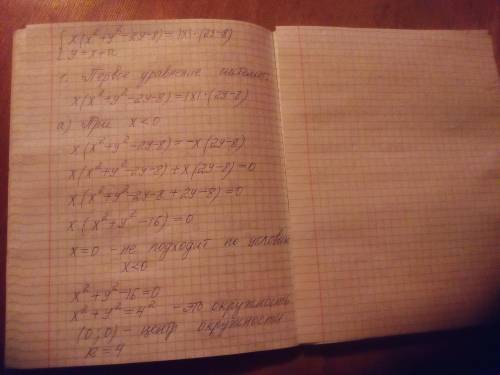 { x(x²+y²-2y-8)=|x|·(2y-8)
y=x+a
1. Первое уравнение системы:
x(x²+y²-2y-8)=|x|·(2y-8)
а) При x<0
x(x²+y²-2y-8)=-x(2y-8)
x(x²+y²-2y-8)+x(2y-8)=0
x(x²+y²-2y-8+2y-8)=0
x·(x²+y²-16)=0
x=0 - не подходит по условию
x<0
x²+y²-16=0
x²+y²=4² - это окружность
(0;0) - центр окружности
R=4